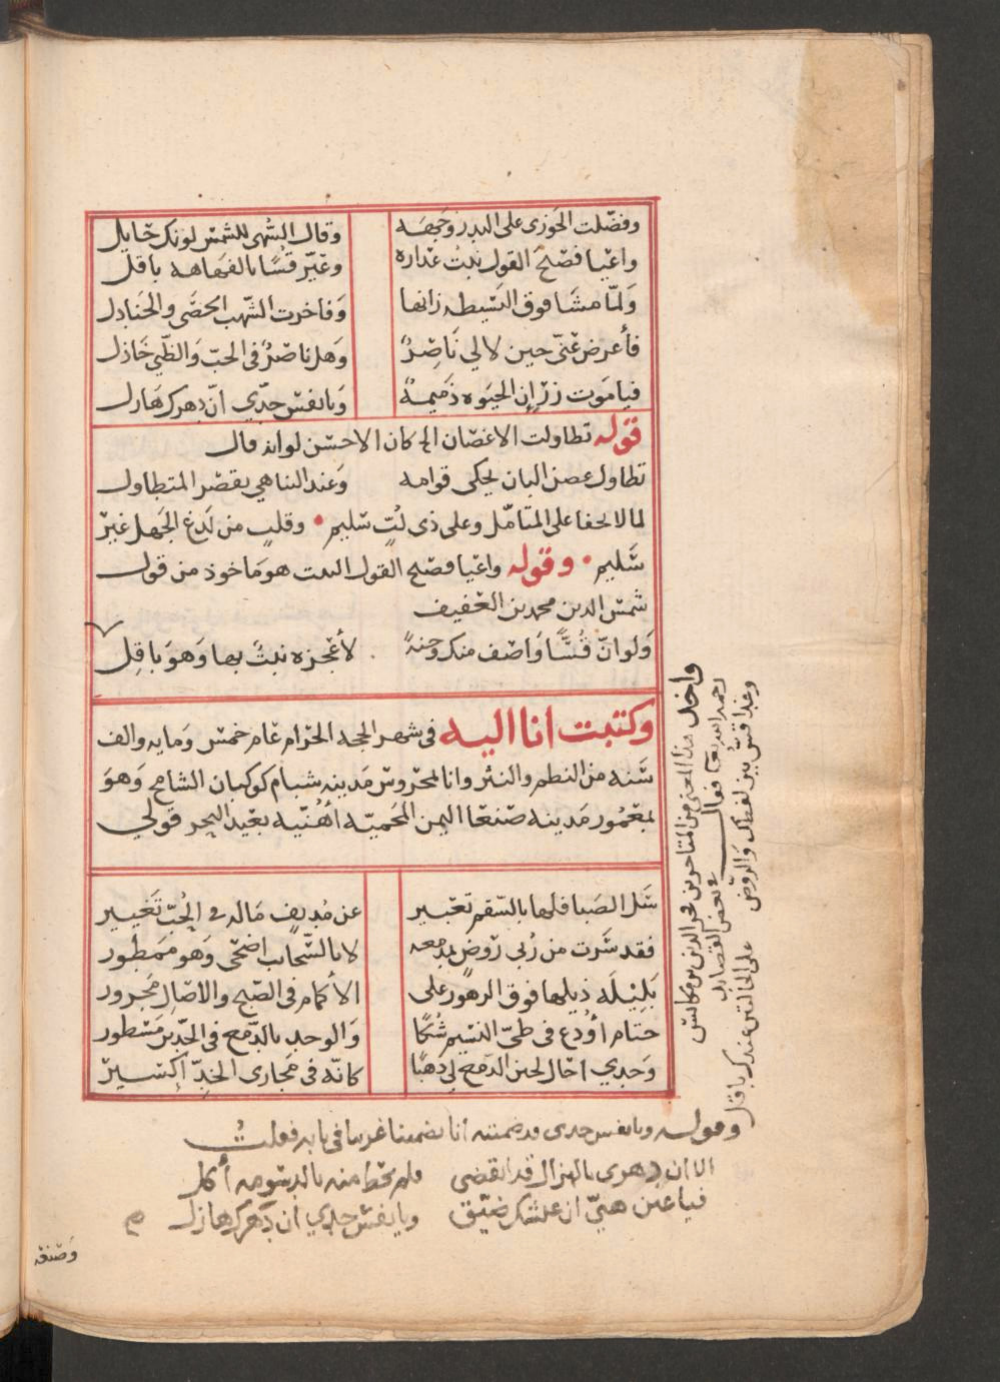 وفضّلت الجوزى على البدر وجهه وقال السُهى للشمس لونك حَايل
واعْيا فصْيحَ القول نبْتُ عذاره وعَيّر قُسًّا بالفهاهه باقل
وَلمّا مشَا فوق البَسيطه زانها وَفاخرت الشّهب الحصَى والجنادل
فأعرض عَنّى حين لا لي نَاصِرٌ وَهل ناصْرٌ فى الحبّ وَالظّبي خَاذل
فيا مَوت زرْ إن الحيَوه ذميمةٌ وَيا نفسْ جدّي انّ دهرك هَازل
قوله تطاولت الاغصان الخ كان الاحسْن لو انه قال
تطاول غصن البان يحكى قوامه وَعند التناهي يقصْر المتطاول
لما لا يخفا على المتأمّل وعلى ذى لُبّ سَليم • وقلبٍ من لدغ الجهل غيرْ
سَليم • وقوله واعْيا فصْيح القول البيت هو مَاخوذ من قول
شمسْ الدين محمد بن العفيف
وَلو انّ قُسًّا وَاصْف منك وجنةً لأعْجزه نبتٌ بها وَهوَ باقِل
وكتبت انا اليه فى شهر الحجه الحرَام عَام خمسْ وَمايه والف
سَنه من النظم والنثر وانا بمحروسْ مَدينه شبام كوكبان الشامخ وَهوَ
بمعْمُور مَدينه صَنعَا اليمن المَحميّه أُهُنّيه بعيْد النحر قولي
سَل الصَبا فلها بالسّقم تعبْير عن مُدنِفٍ مَاله في الحُبّ تَغييْر
فقد سَرت من رُبى رَوضٍ بمدمعه لا بالسّحَاب اضحَى وَهو مَمطور
بَلِيْلَه ذيلها فوق الزهور على الأكمام فى الصْبح والاصَالِ مَجرور
حتام أودع فى طَىّ النسيم شُكًا وَالوجد بالدّمع فى الخدين مَسْطور
وَخدي احال لحن الدّمع لي ذهبًا كانّه فى مَجارى الخدّ اِكسْيرْ
واخذ هذا المعنى من المتاخرين فخر الدين بن مكانس
رحمه الله تعا فقال في بعض القصايد
وغدا قسٌّ بين لفظك وَالروْض على الحالتين عندك باقل
وقوله ويا نفس جدى قد ضمنته انا تضمينا غريبا فى بابه فقلتُ
الا ان دهرى بالهزال قد انقضى ولم يحط منه بالدسْومه أكل
فيا عين هبيّ ان عيشك ضيّق ويا نفسْ جدي ان دَهرك هازل
وَصَنفه